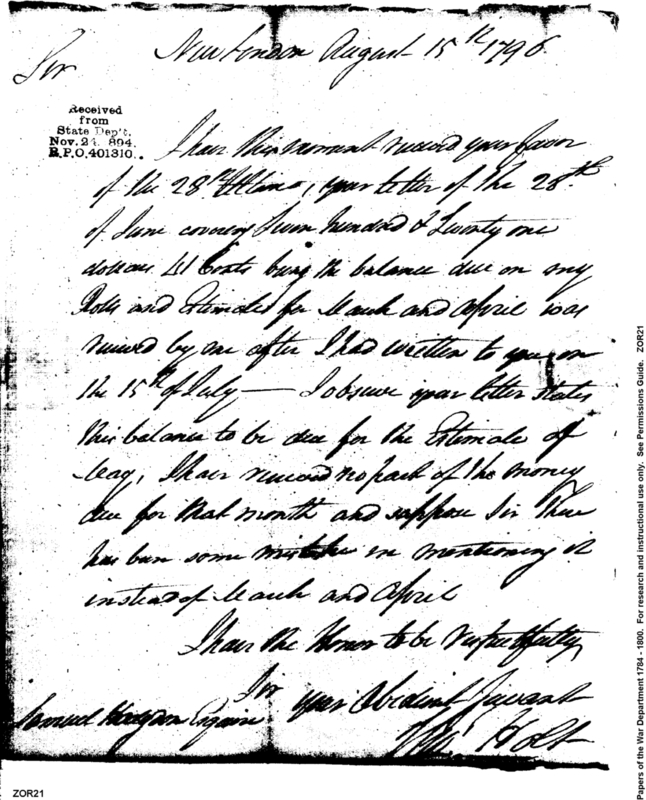 New London August 15th 1796
Sir
Received
from
State Dep't.
Nov. 24. 894.
R.P.O. 401310.
I have this moment received your favor
of the 28th Ultimo, your letter of the 28th
of June covering Seven hundred & Twenty one
dollars 41 Cents being the balance due on my
Rolls and Estimates for March and April was
received by me after I had written to you on
the 15th of July — I observe your letter states
this balance to be due for the Estimate of
May, I have received no part of the money
due for that month and suppose Sir there
has been some mistake in mentioning it
instead of March and April
I have the Honor to be respectfully
Sir your Obedient Servant
Samuel Hodgdon Esquire
Holt
ZOR21
Papers of the War Department 1784 - 1800. For research and instructional use only. See Permissions Guide. ZOR21